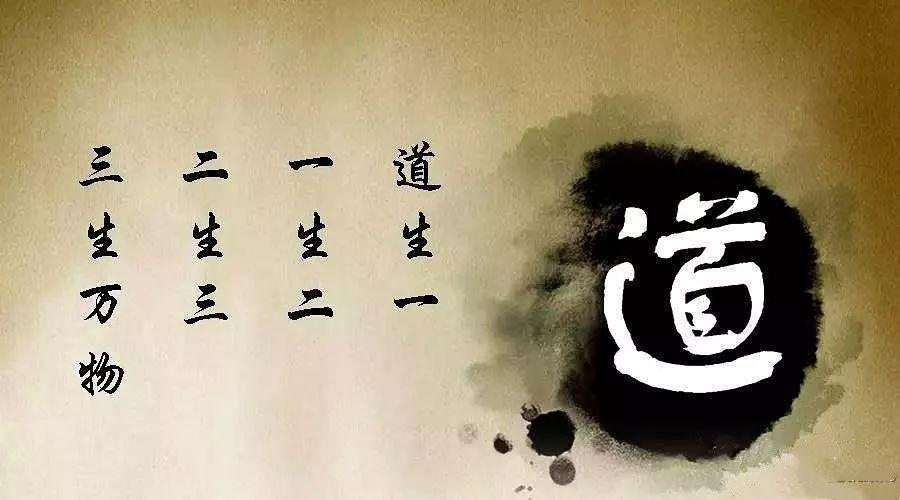 道
道生一
一生二
二生三
三生万物